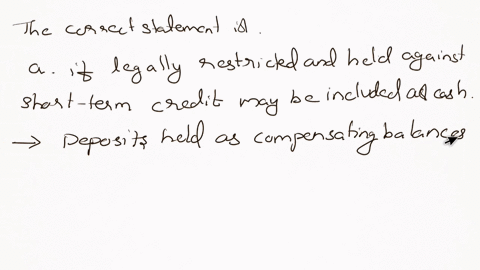 The correct statement is.
a. if legally restricted and held against
short-term credit may be included as cash.
→ Deposits held as compensating balances